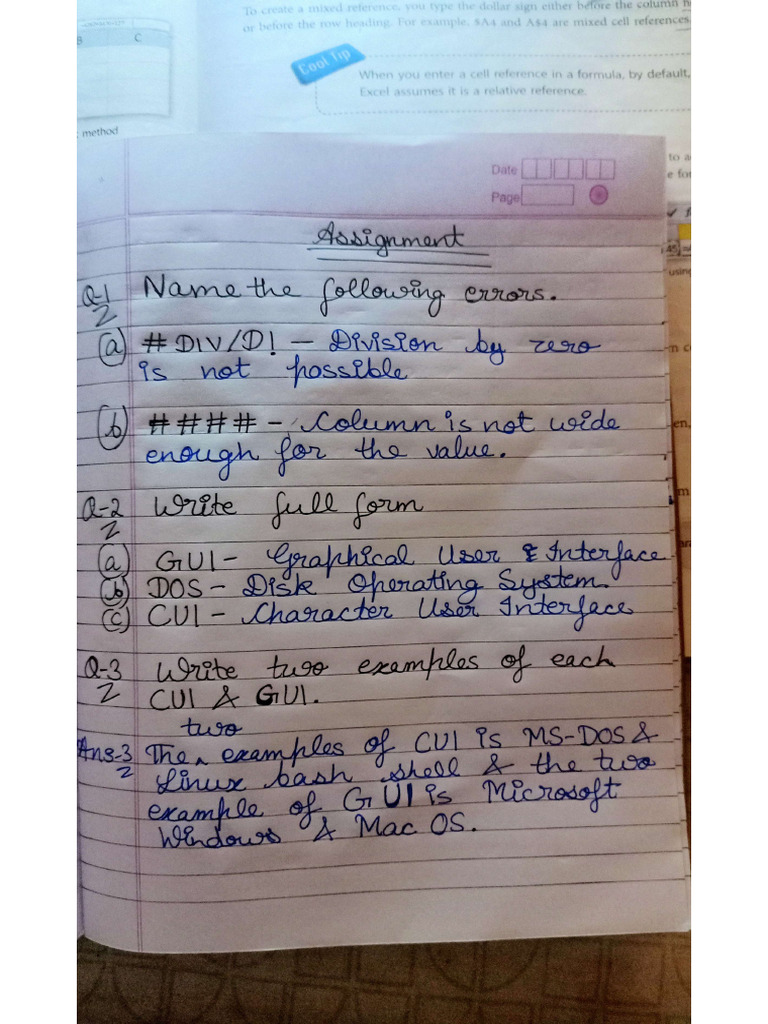 To create a mixed reference, you type the dollar sign either before the column
or before the row heading. For example, $A4 and A$4 are mixed cell references.
B C
Cool Tip
When you enter a cell reference in a formula, by default,
Excel assumes it is a relative reference.
method
to a
Date
Page
Assignment
using
Q-1 Name the following errors.
(a) #DIV/D! - Division by zero
is not possible
(b) #### - Column is not wide
enough for the value.
Q-2 Write full form
(a) GUI - Graphical User & Interface
(b) DOS - Disk Operating System
(c) CUI - Character User Interface
Q-3 Write two examples of each
CUI & GUI.
two
Ans-3 The ^ examples of CUI is MS-DOS &
Linux bash shell & the two
example of GUI is Microsoft
Windows & Mac OS.